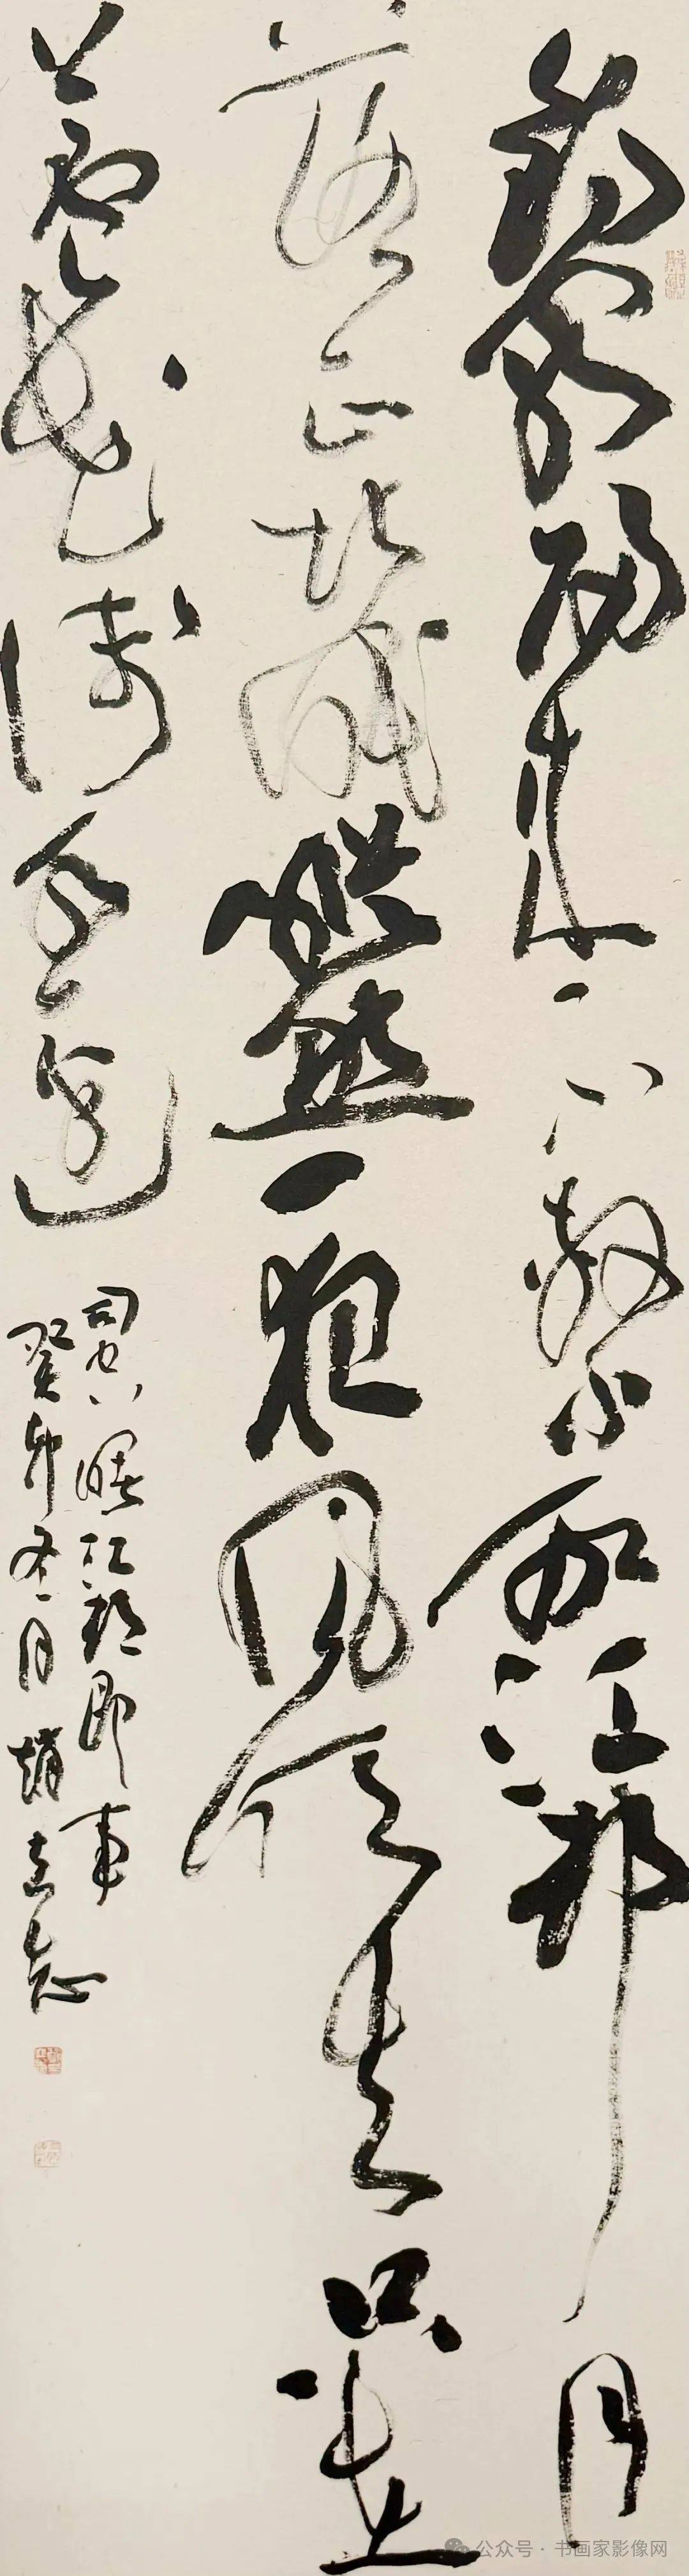 钓罢归来不系船江村月
落正堪眠纵然一夜风吹去只在
芦花浅水边
司空曙江村即事
癸卯冬月赵志
公众号·书画家影像网